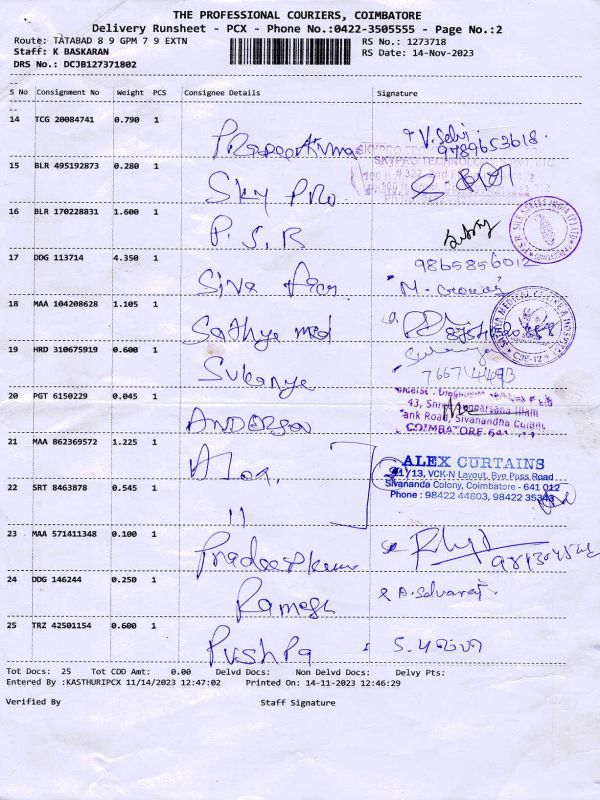 THE PROFESSIONAL COURIERS, COIMBATORE
Delivery Runsheet - PCX - Phone No.:0422-3505555 - Page No.:2
Route: TATABAD 8 9 GPM 7 9 EXTN RS No.: 1273718
Staff: K BASKARAN RS Date: 14-Nov-2023
DRS No.: DCJB127371802
S No Consignment No Weight PCS Consignee Details Signature
14 TCG 20084741 0.790 1 V. Selvi
9789653618
15 BLR 495192873 0.280 1 Sky Pro
SKYPRO TECHNOLO
16 BLR 170228831 1.600 1 P. S. R
17 DDG 113714 4.350 1 Siva 9865856012
18 MAA 104208628 1.105 1 Sathya med
19 HRD 310675919 0.600 1 Sukanya
7667144693
20 PGT 6150229 0.045 1 ANDERSON
43, Sivanandha Colony
COIMBATORE-641
21 MAA 862369572 1.225 1 Alex
ALEX CURTAINS
/13, VCK-N Layout, Bye Pass Road
Sivananda Colony, Coimbatore - 641 012
Phone : 98422 44803, 98422 35343
22 SRT 8463878 0.545 1 11
23 MAA 571411348 0.100 1 Pradeepkumar
24 DDG 146244 0.250 1 Ramesh A. Selvaraj
25 TRZ 42501154 0.600 1 Pushpa
Tot Docs: 25 Tot COD Amt: 0.00 Delvd Docs: Non Delvd Docs: Delvy Pts:
Entered By :KASTHURIPCX 11/14/2023 12:47:02 Printed On: 14-11-2023 12:46:29
Verified By Staff Signature